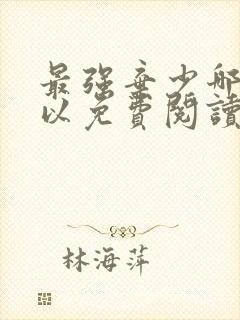 最强弃少哪
以免費閱讀
林海萍